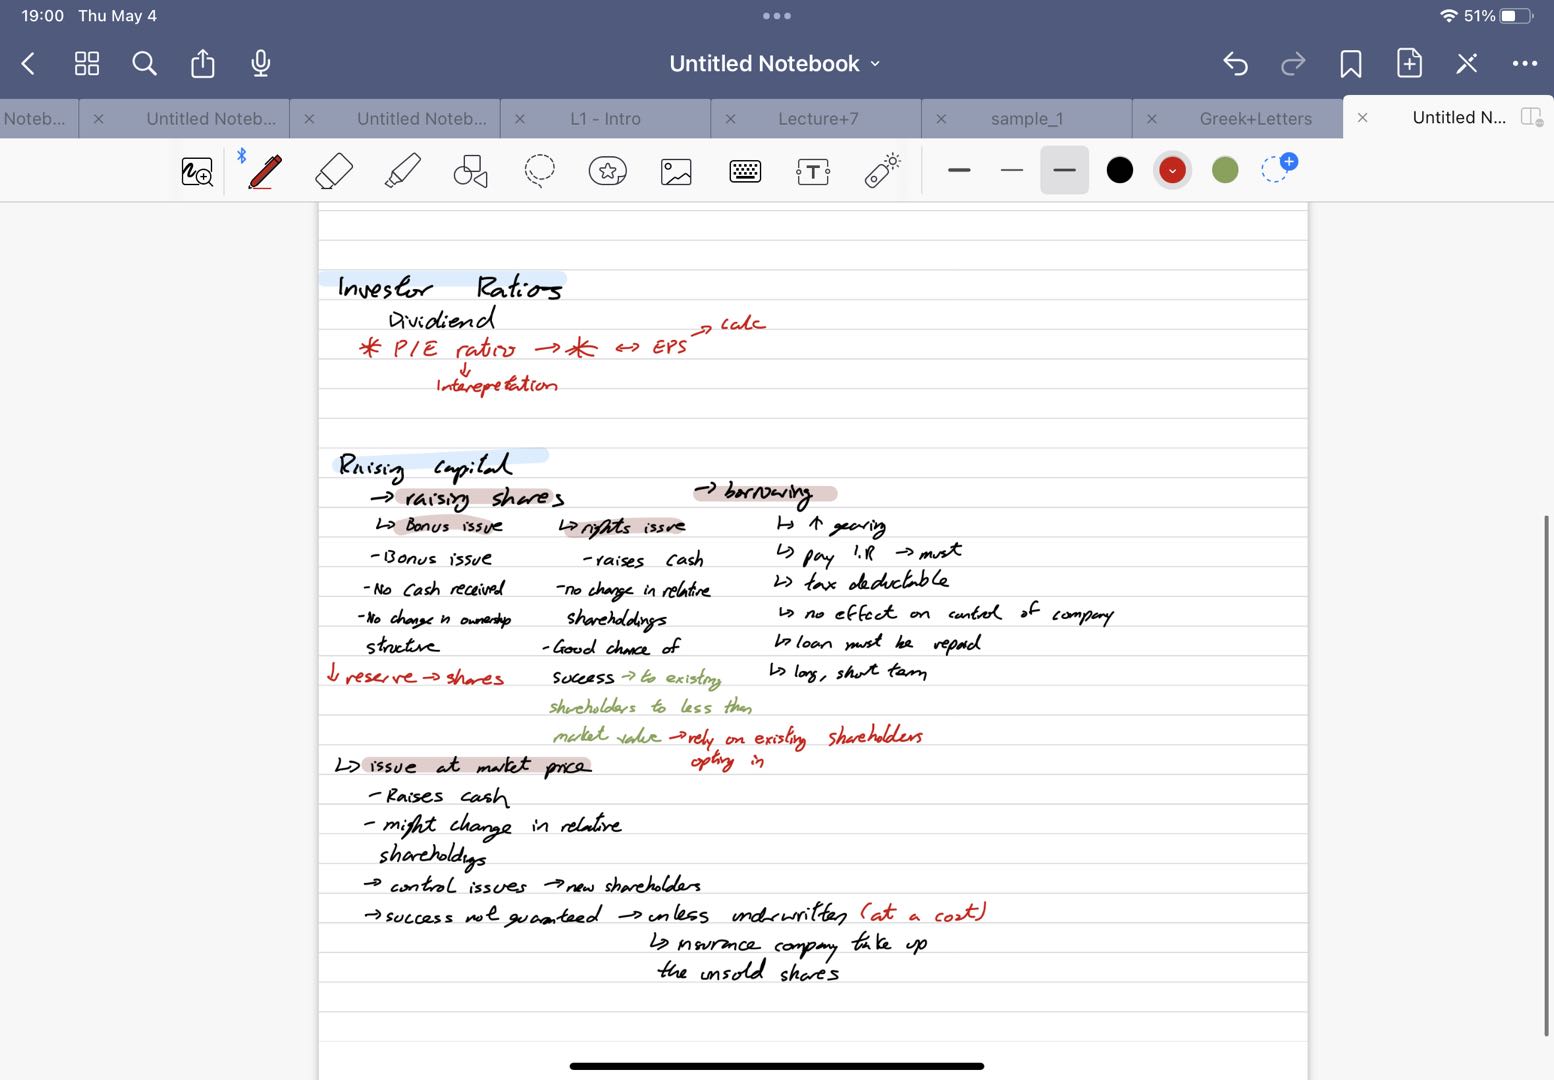 19:00 Thu May 4
51%
Untitled Notebook
Noteb...
Untitled Noteb...
Untitled Noteb...
L1 - Intro
Lecture+7
sample_1
Greek+Letters
Untitled N...
Investor Ratios
Dividiend
* P/E ratio → * ↔ EPS → calc
↓
Interepretation
Raising capital
→ raising shares
↳ Bonus issue
- Bonus issue
- No cash received
- No change in ownership
structure
↓ reserve → shares
↳ rights issue
- raises cash
- no change in relative
shareholdings
- Good chance of
success → to existing
shareholders to less than
market value → rely on existing shareholders
opting in
→ borrowing
↳ ↑ gearing
↳ pay I.R → must
↳ tax deductable
↳ no effect on control of company
↳ loan must be repaid
↳ long, short term
↳ issue at market price
- Raises cash
- might change in relative
shareholdings
→ control issues → new shareholders
→ success not guaranteed → unless underwritten (at a cost)
↳ insurance company take up
the unsold shares